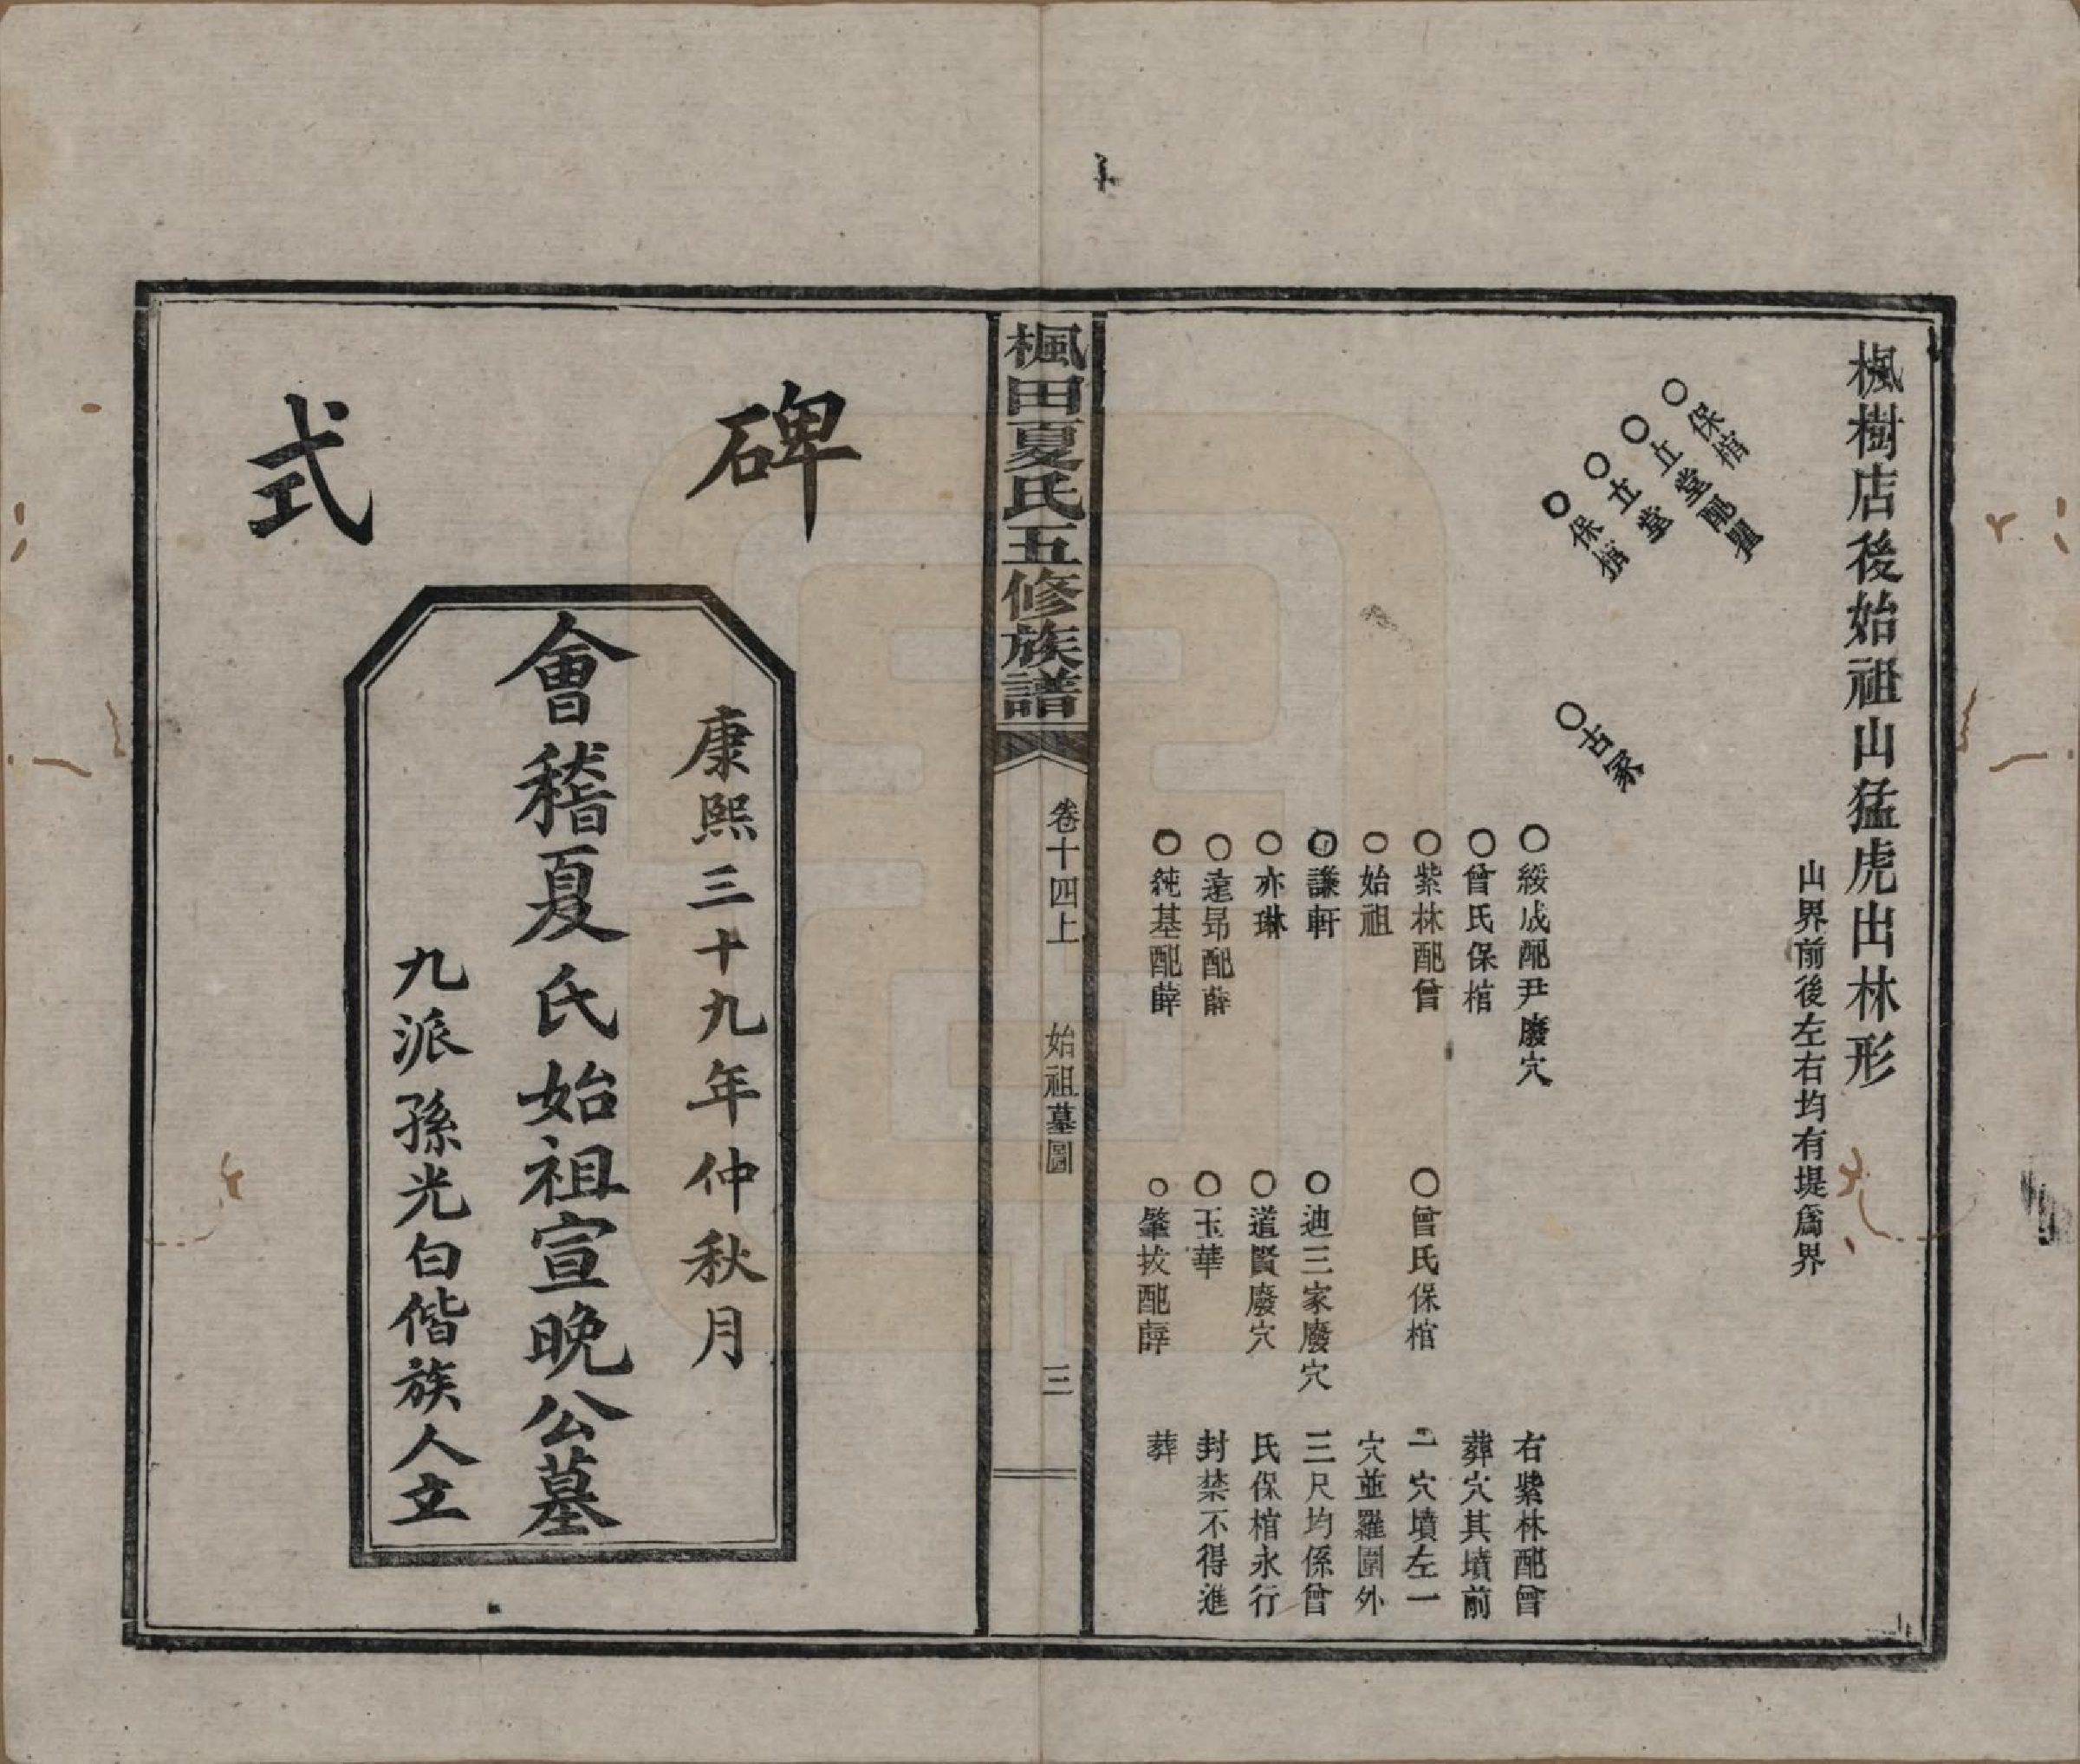 楓樹店後始祖山猛虎出林形
山界前後左右均有堤爲界
保棺
丘堂配瞿
立堂
保棺
古冢
綏成配尹廢穴
曾氏保棺
紫林配曾
始祖
謙軒
亦琳
遠昂配薛
純基配薛
曾氏保棺
迪三家廢穴
道賢廢穴
玉華
肇拔配薛
右紫林配曾
葬穴其墳前
一穴墳左一
穴並羅圍外
三尺均係曾
氏保棺永行
封禁不得進
葬
楓田夏氏五修族譜
卷十四上
始祖墓圖
三
碑式
康熙三十九年仲秋月
會稽夏氏始祖宣晚公墓
九派孫光白偕族人立